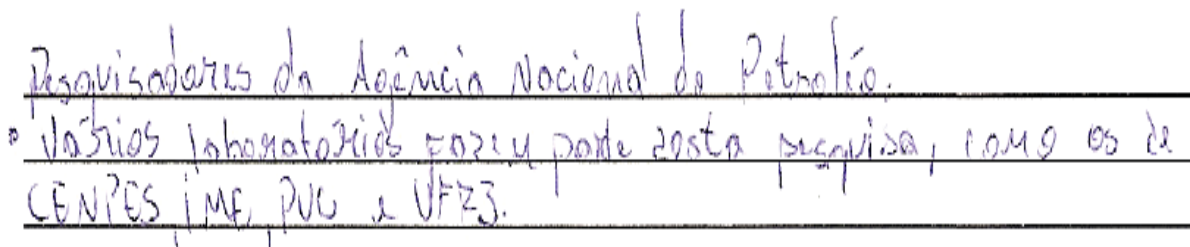 Pesquisadores da Agência Nacional do Petroléo.
• Vários laboratórios fazem parte desta pesquisa, como os de
CENPES, IME, PUC e UFRJ.